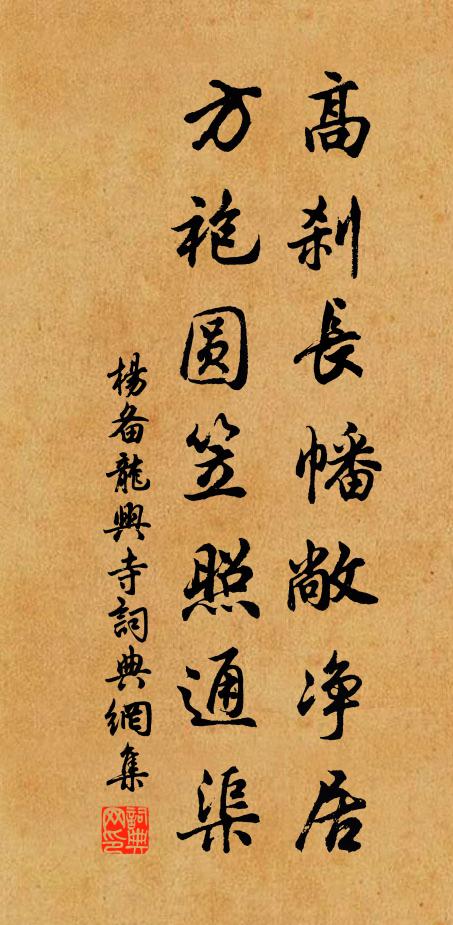 高刹長幡敞净居
方袍圆笠照通渠
楊备龍興寺詞典網集
詞典网印